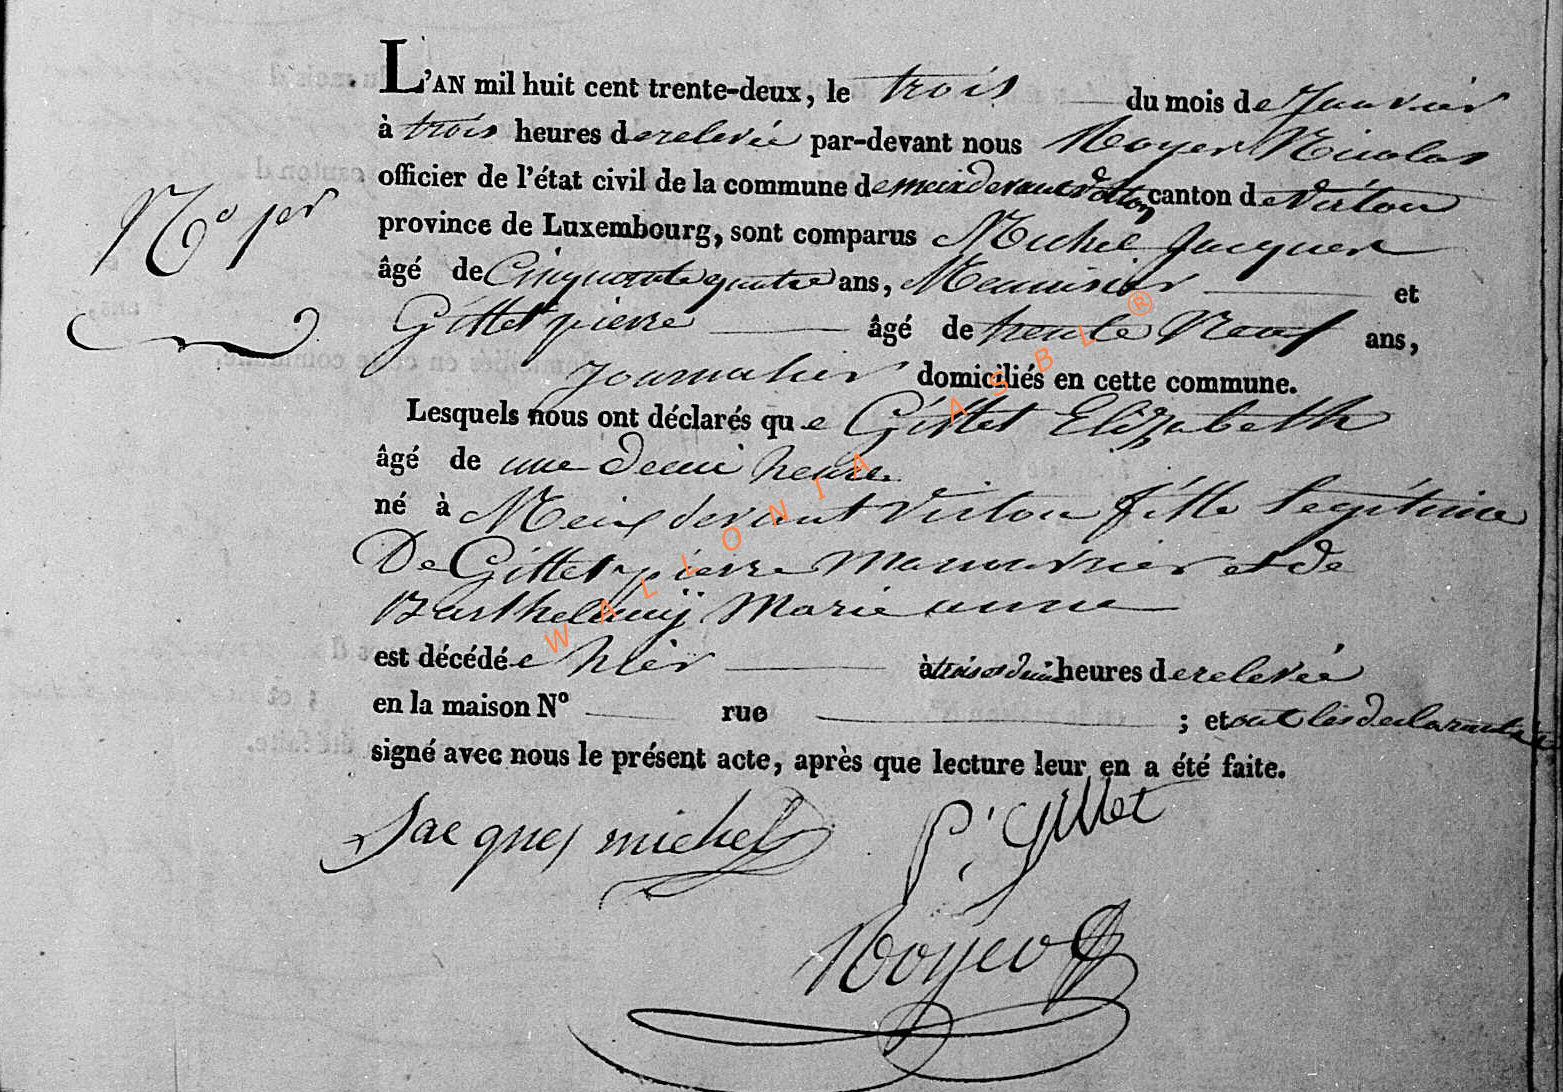 L'AN mil huit cent trente-deux, le trois du mois de Janvier
à trois heures de relevée par-devant nous Noyer Nicolas
officier de l'état civil de la commune de meix devant virton canton de virton
N.o 1er
province de Luxembourg, sont comparus Michel Jacques
âgé de Cinquante quatre ans, Menuisier et
Gillet pierre âgé de trente Neuf ans,
Journalier domiciliés en cette commune.
Lesquels nous ont déclarés que Gillet Elizabeth
âgé de une demi heure
né à Meix devant Virton fille Legitime
De Gillet pierre manouvrier et de
Barthelemÿ Marie anne
est décédée hier à trois et demi heures de relevée
en la maison No rue ; et ont les declarants
signé avec nous le présent acte, après que lecture leur en a été faite.
Jacques michel P. Gillet
Noÿer
WALLONIA ASBL ®